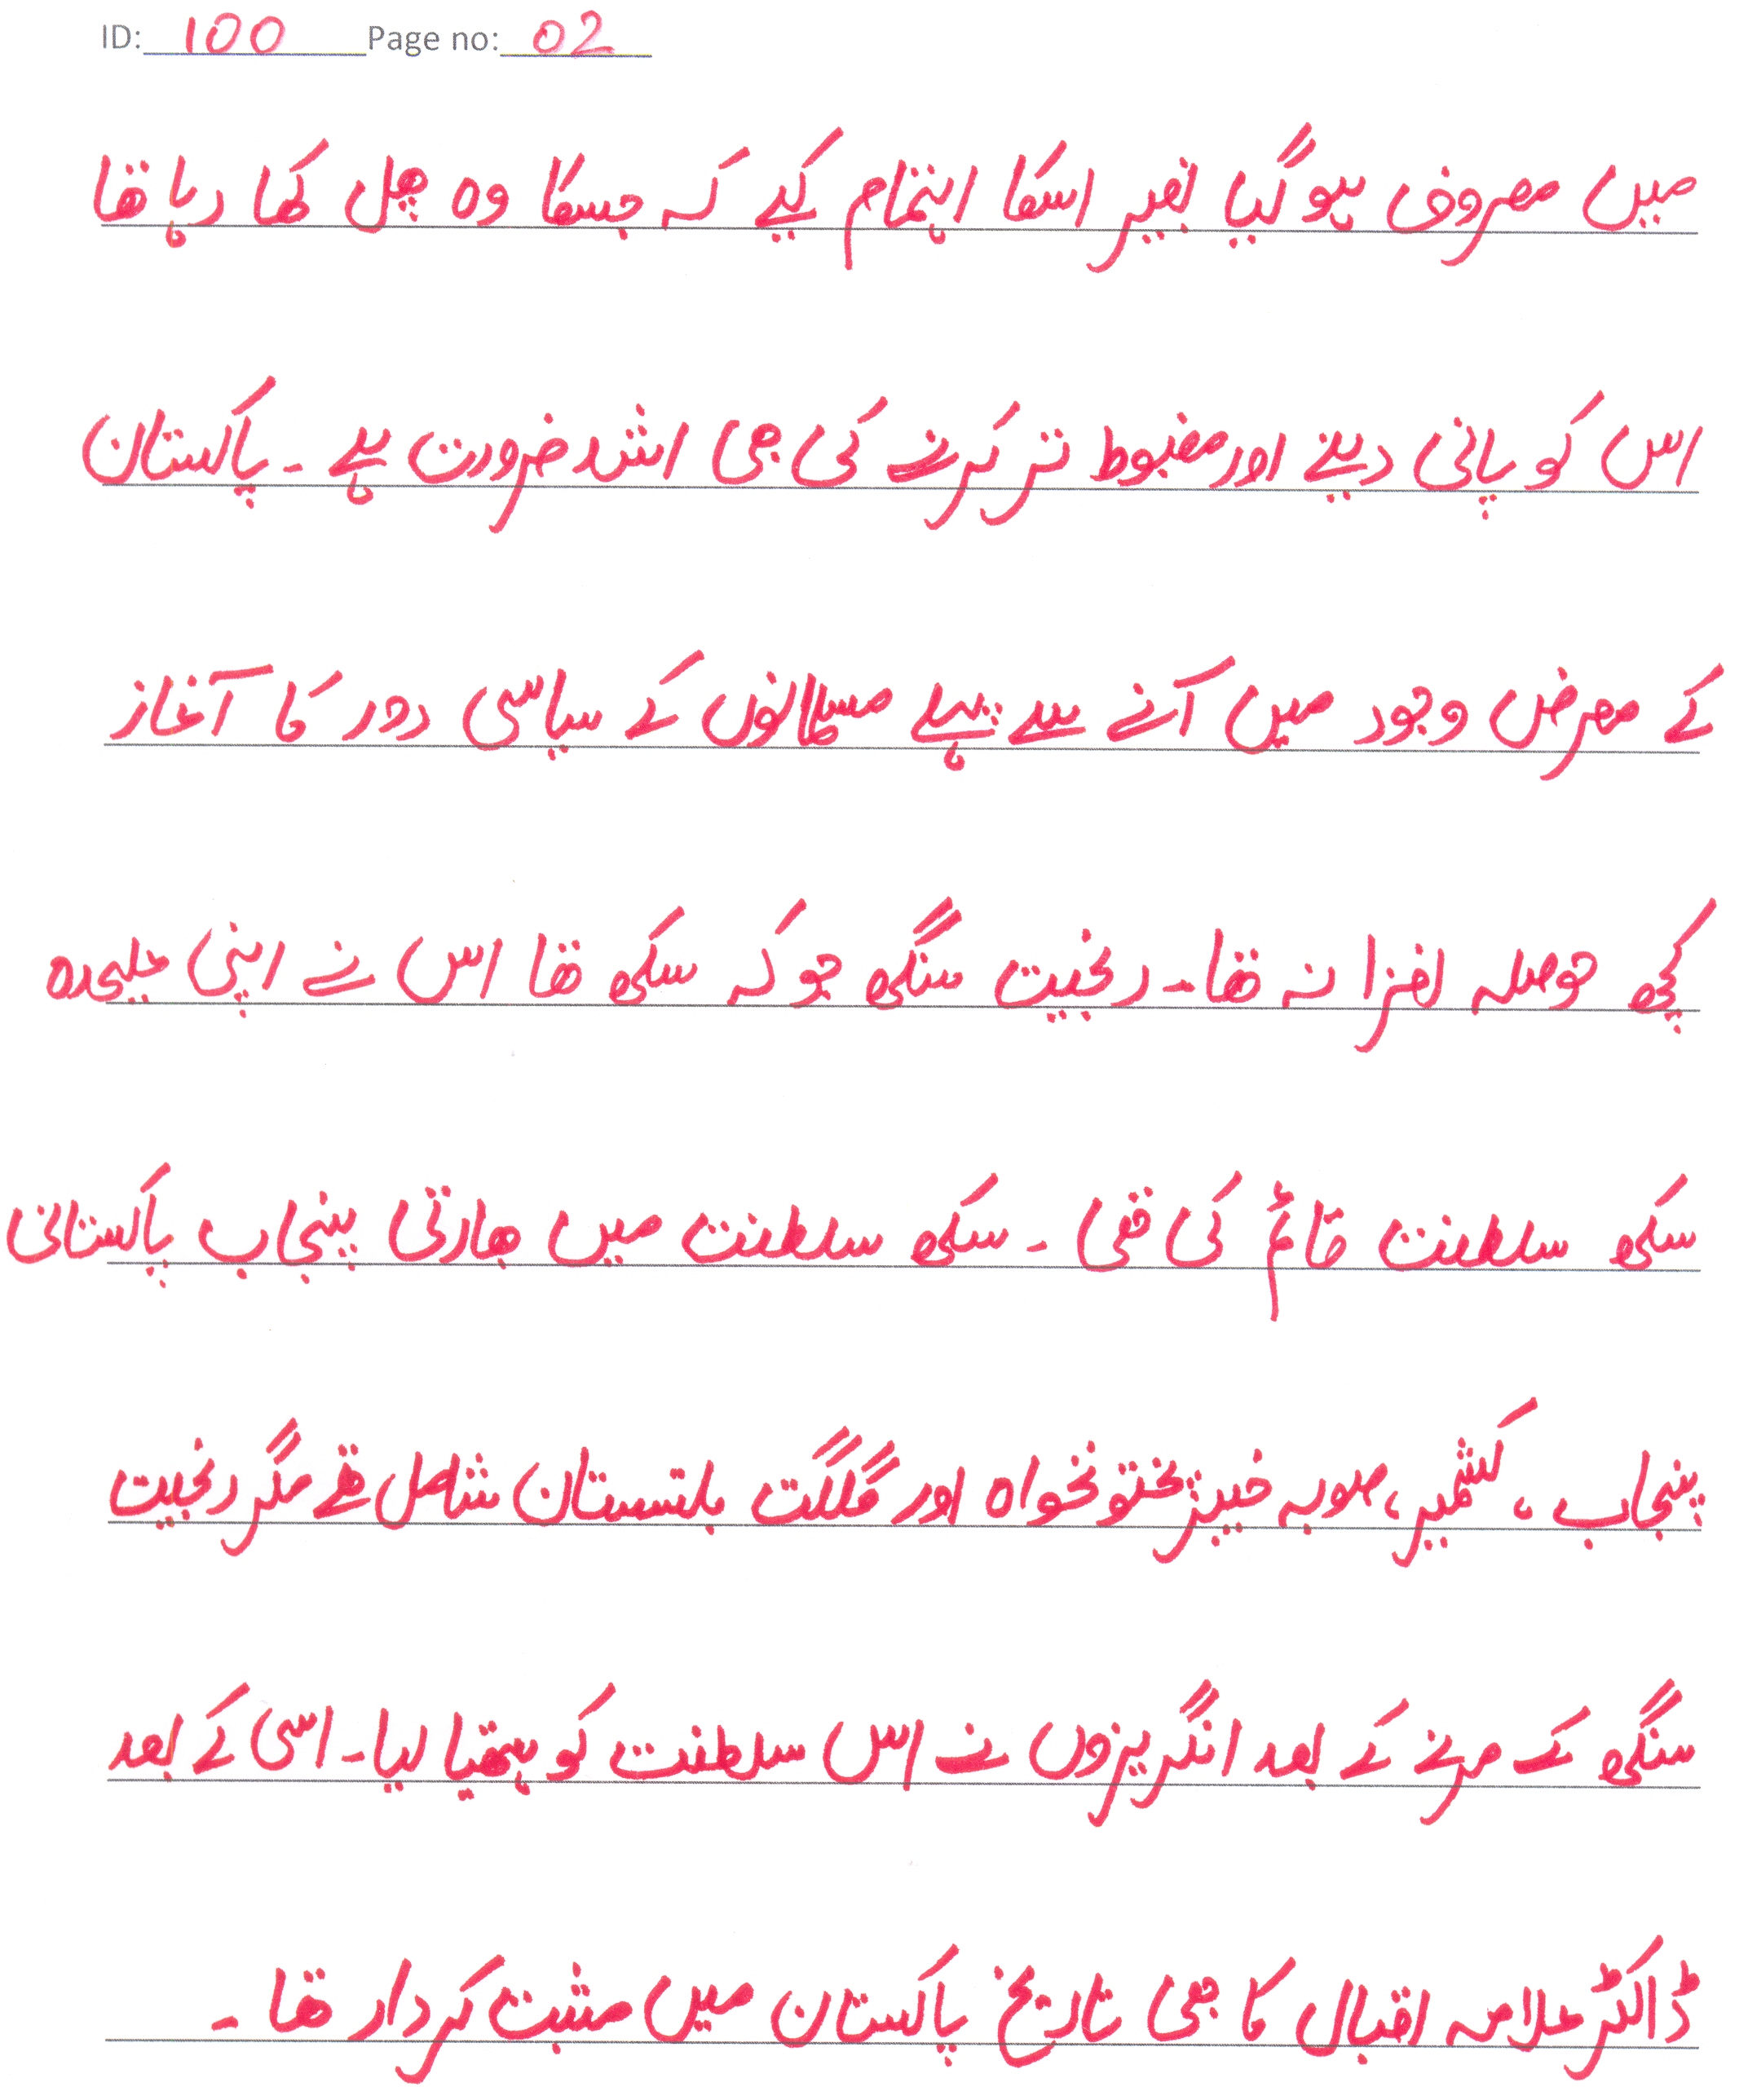 ID: 100 Page no: 02
میں مصروف ہو گیا بغیر اسکا اہتمام کیے کہ جسکا وہ پھل کھا رہا تھا
اس کو پانی دینے اور مضبوط تر کرنے کی بھی اشد ضرورت ہے۔ پاکستان
کے معرض وجود میں آنے سے پہلے مسلمانوں کے سیاسی دور کا آغاز
کچھ حوصلہ افزا نہ تھا۔ رنجیت سنگھ جو کہ سکھ تھا اس نے اپنی علیحدہ
سکھ سلطنت قائم کی تھی ۔ سکھ سلطنت میں بھارتی پنجاب پاکستانی
پنجاب ، کشمیر، صوبہ خیبر پختونخواہ اور گلگت بلتستان شامل تھے مگر رنجیت
سنگھ کے مرنے کے بعد انگریزوں نے اس سلطنت کو ہتھیا لیا۔ اسی کے بعد
ڈاکٹر علامہ اقبال کا بھی تاریخ پاکستان میں مثبت کردار تھا ۔